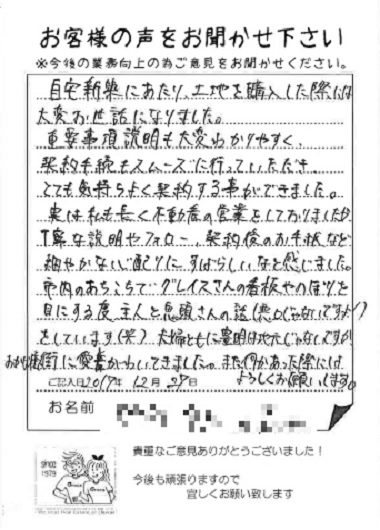 お客様の声をお聞かせ下さい
※今後の業務向上の為ご意見をお聞かせください。
自宅新築にあたり、土地を購入した際には
大変お世話になりました。
重要事項説明も大変わかりやすく、
契約手続もスムーズに行っていただき、
とても気持ちよく契約する事ができました。
実は私も長く不動産の営業をしておりましたが
丁寧な説明やフォロー、契約後のお手紙など
細やかな心配りに、すばらしいなと感じました。
市内のあちらこちらで グレイスさんの看板やのぼりを
目にする度、主人と息頭さんの話(悪口じゃないですよ!)
をしています(笑) 夫婦ともに豊明は地元じゃないですが
街に愛着がわいてきました。また何かあった際には
よろしくお願いします。
ご記入日2017年 12月 29日
お名前
SINCE
1973
貴重なご意見ありがとうございました！
今後も頑張りますので
宜しくお願い致します